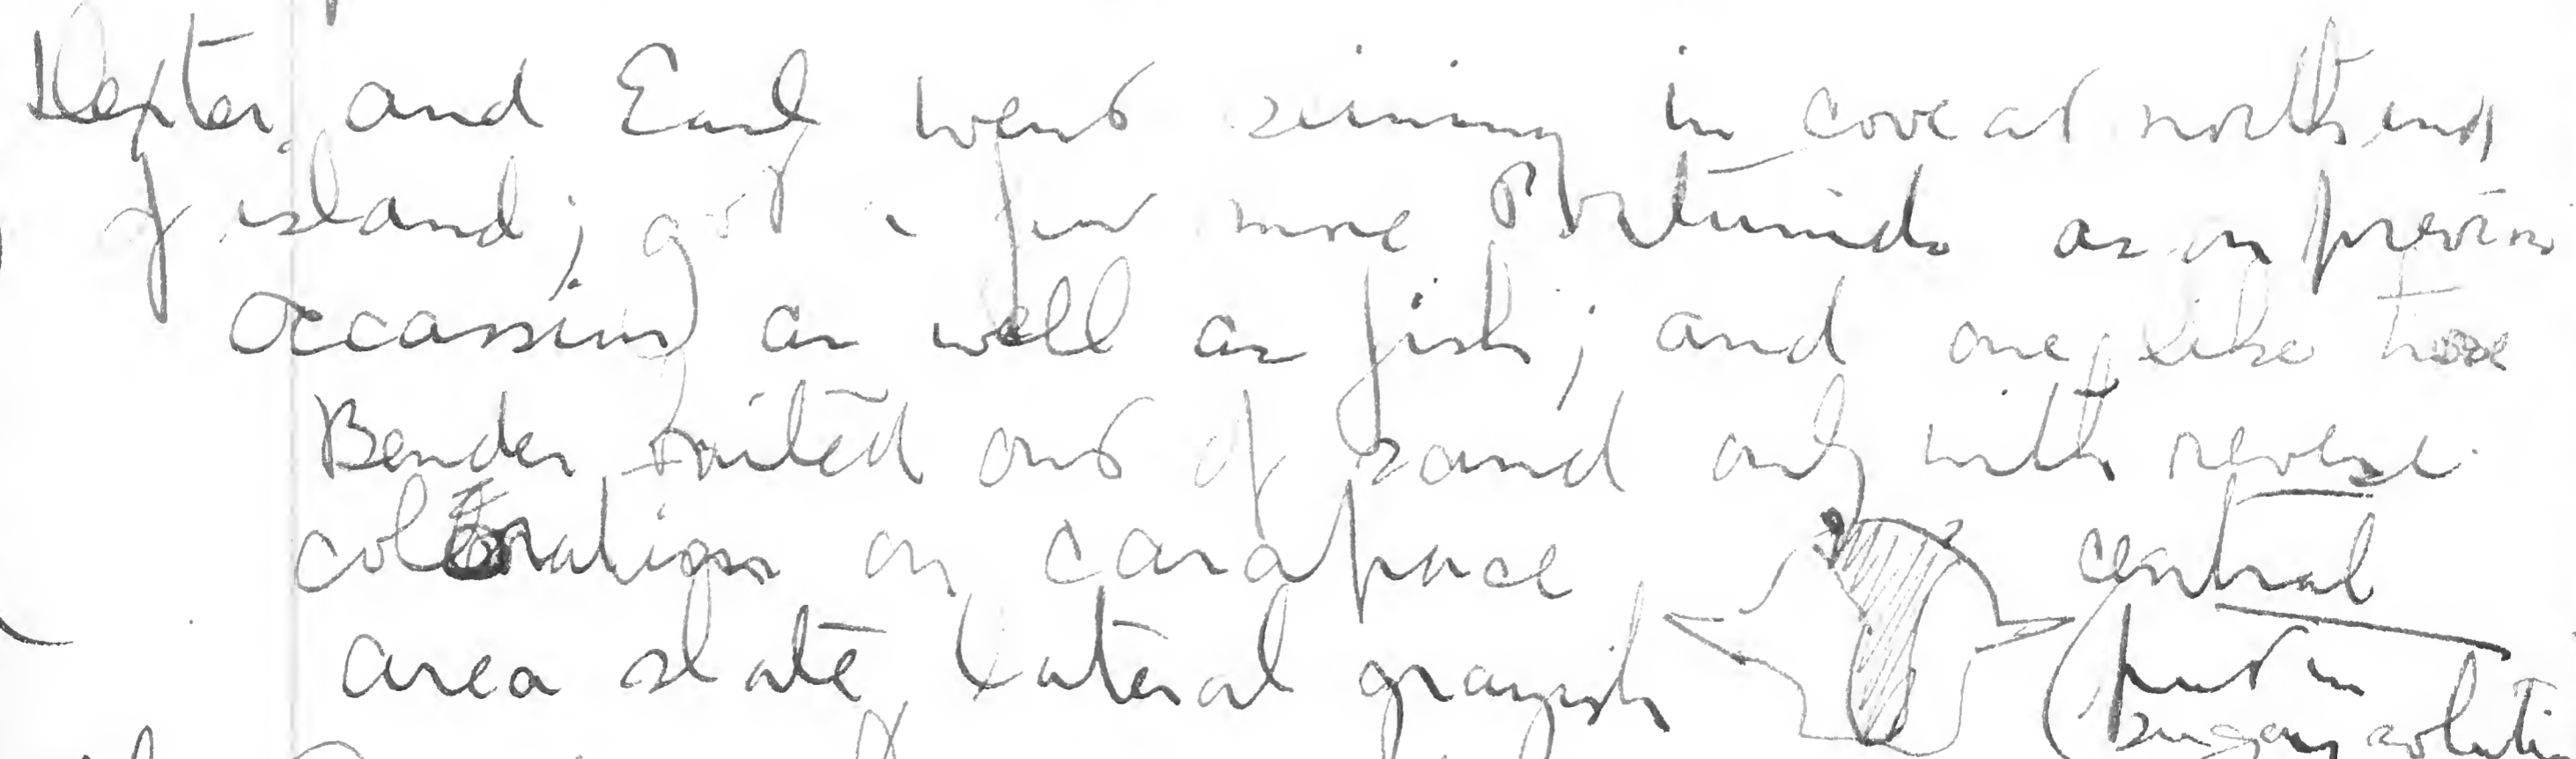 Dexter and Earl went seining in cove at north end
of island; got a few more Portunids as on previous
occassions as well as fish; and one, like those
Bender baited out of sand only with reverse
coloration on carapace central
area slate, lateral grayish (put in
sugary solution